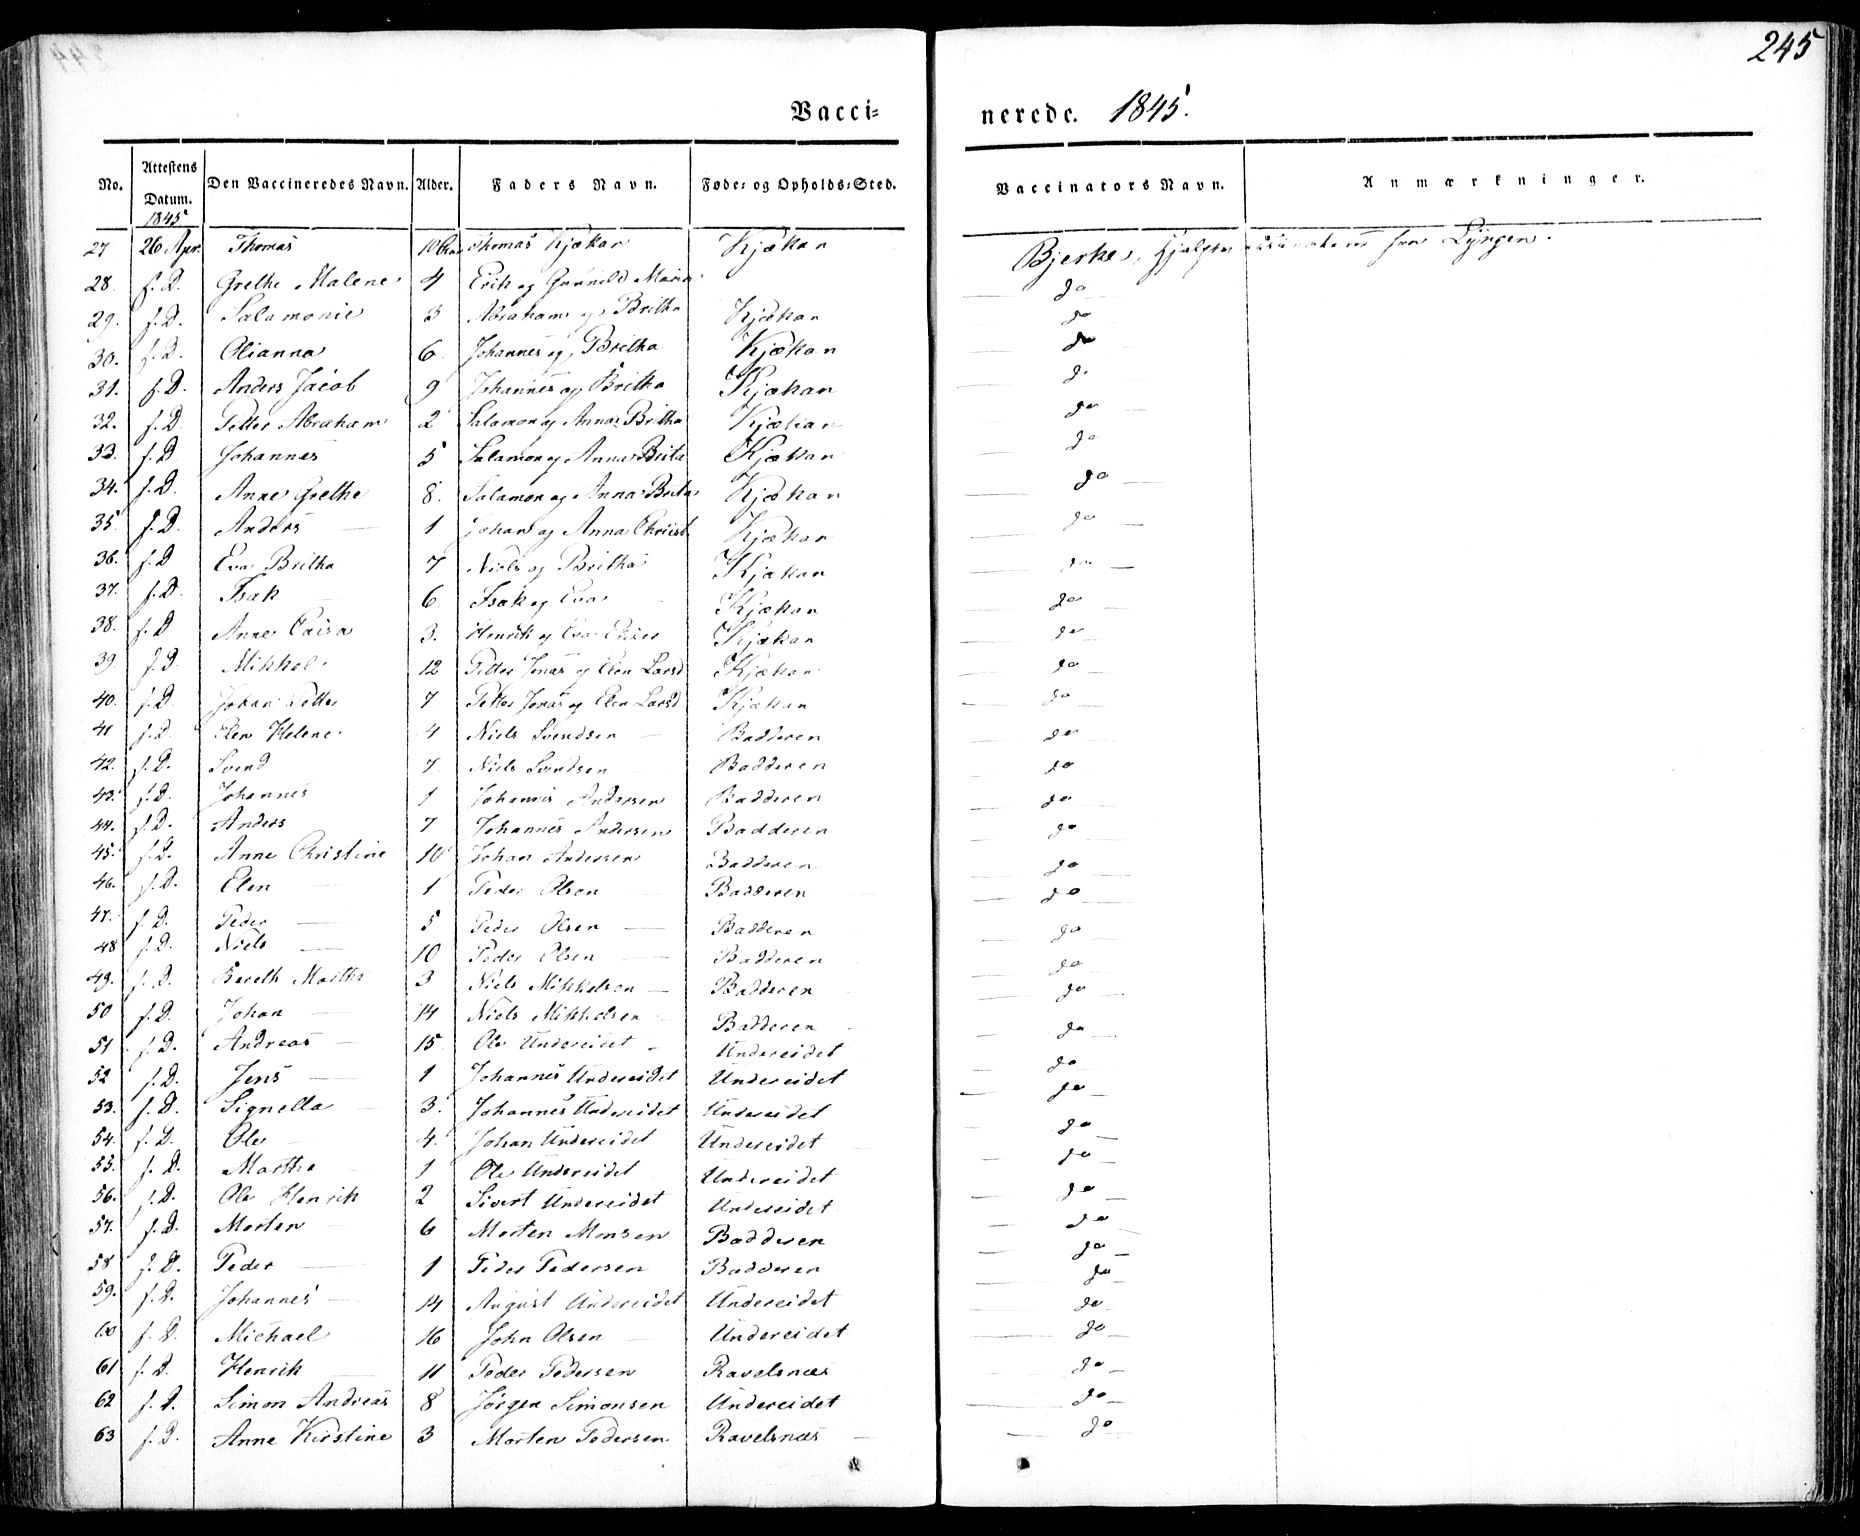 245
Vacci= nerede. 1845.
No. Attestens Datum. Den Vaccineredes Navn. Alder. Faders Navn. Føde= og Opholds=Sted. Vaccinators Navn. Anmærkninger.
1845
27 26 Apr. Thomas 10 Thomas Kjækan Kjækan Bjerke, Hjelpevaccinateur fra Lyngen.
28. s. D. Grethe Malene 4 Erik og Gunnild Maria do
29. s. D. Salamonie 3 Abraham og Britha Kjækan do
30. s. D. Olianna 6 Johannes og Britha Kjækan do
31. s. D. Anders Jacob 9 Johannes og Britha Kjækan do
32. s. D. Petter Abraham 2 Salamon og Anna Britha Kjækan do
33. s. D Johannes 5 Salamon og Anna Brita Kjækan do
34. s. D. Anne Grethe 8. Salamon og Anna Brita Kjækan do
35. s. D. Anders 1 Johan og Anna Christ Kjækan do
36. s. D Eva Britha 7 Niels og Britha Kjækan do
37. s. D. Isak 6 Isak og Eva Kjækan do
38. s. D Anne Caisa 3. Henrik og Eva Kjækan do
39. s. D Mikkel 12 Petter Jonas og Elen Larsd Kjækan do
40. s. D. Johan Petter 7 Petter Jonas og Elen Larsd Kjækan do
41 s. D. Elen Helene 4 Niels Svendsen Badderen do
42. s. D. Svend 7 Niels Svendsen Badderen do
43. s. D. Johannes 1 Johannes Andersen Badderen do
44. s. D. Anders 7 Johannes Andersen Badderen do
45. s. D. Anne Christine 10 Johan Andersen Badderen do
46. s. D. Elen 1 Peder Olsen Badderen do
47. s. D. Peder 5 Peder Olsen Badderen do
48 s. D. Niels 10 Peder Olsen Badderen do
49. s. D. Bereth Martha 3 Niels Mikkelsen Badderen do
50 s. D. Johan 14 Niels Mikkelsen Badderen do
51 s. D. Andreas 15 Ole Undereidet Undereidet do
52 s. D. Jens 1 Johannes Undereidet Undereidet do
53. s. D. Signella 3. Johannes Undereidet Undereidet do
54. s. D. Ole 4. Johan Undereidet Undereidet do
55. s. D. Martha 1 Ole Undereidet Undereidet do
56. s. D. Ole Henrik 2 Sivert Undereidet Undereidet do
57. s. D. Morten 6 Morten Monsen Badderen do
58 s. D. Peder 1 Peder Pedersen Badderen do
59. s. D. Johannes 14 August Undereidet Undereidet do
60 s. D. Michael 16 John Olsen Undereidet do
61 s. D. Henrik 11 Peder Pedersen Ravelsnæs do
62 s. D. Simon Andreas 8 Jørgen Simonsen Undereidet do
63 s. D. Anne Kirstine 3 Morten Pedersen Ravelsnæs do